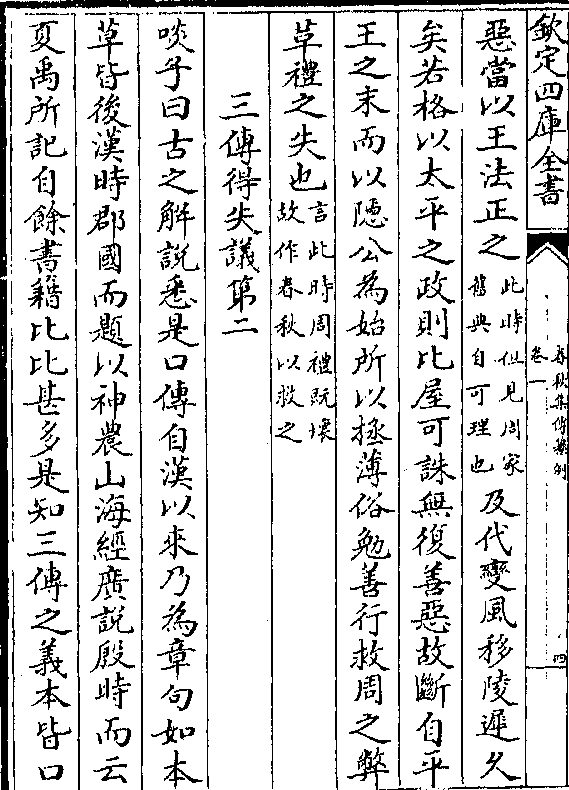 欽定四庫全書
春秋集傳纂例
卷一
四
惡當以王法正之此時但見周家舊典自可理也及代變風移陵遲久
矣若格以太平之政則比屋可誅無復善惡故斷自平
王之末而以隱公為始所以拯薄俗勉善行救周之弊
草禮之失也言此時周禮既壞故作春秋以救之
三傳得失議第二
啖子曰古之解說悉是口傳自漢以來乃為章句如本
草皆後漢時郡國而題以神農山海經廣說殷時而云
夏禹所記自餘書籍比比甚多是知三傳之義本皆口